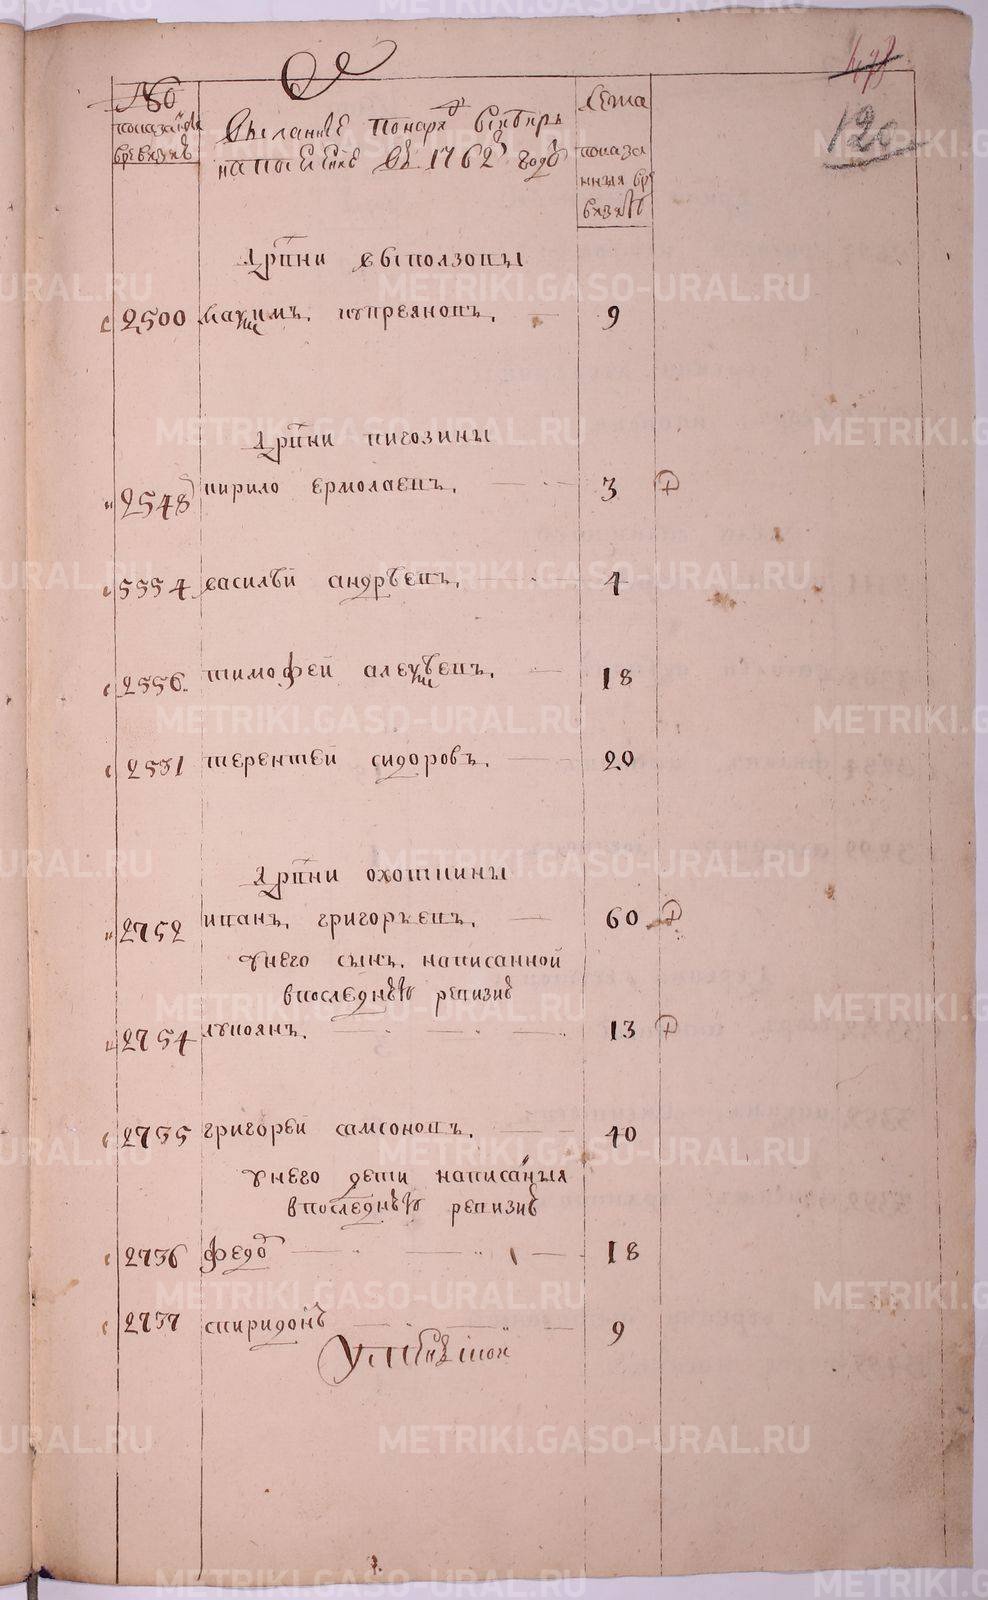 473
120
№
показанной
в ревизиѣ
Высланные по наряд в Сибирь
на поселение в 1762 году
Лета
показа
нныя в ре
визиѣ
дрвни выползовы
2500 Маѯимъ куприяновъ. 9
дрвни пигозины
2548 кирило ермолаевъ. 3
5554 василѣй андрѣевъ. 4
2556. тимофей алеѯѣевъ. 18
2531 терентей сидоровъ. 20
дрвни охотнины
2752 иванъ, григорьевъ. 60
у него сынъ, написанной
в последнею ревизию
2754 лукоянъ. 13
2735 григорей самсоновъ. 40
у него дети написаныя
в последнею ревизию
2736 федо 18
2737 спиридонъ 9
METRIKI.GASO-URAL.RU